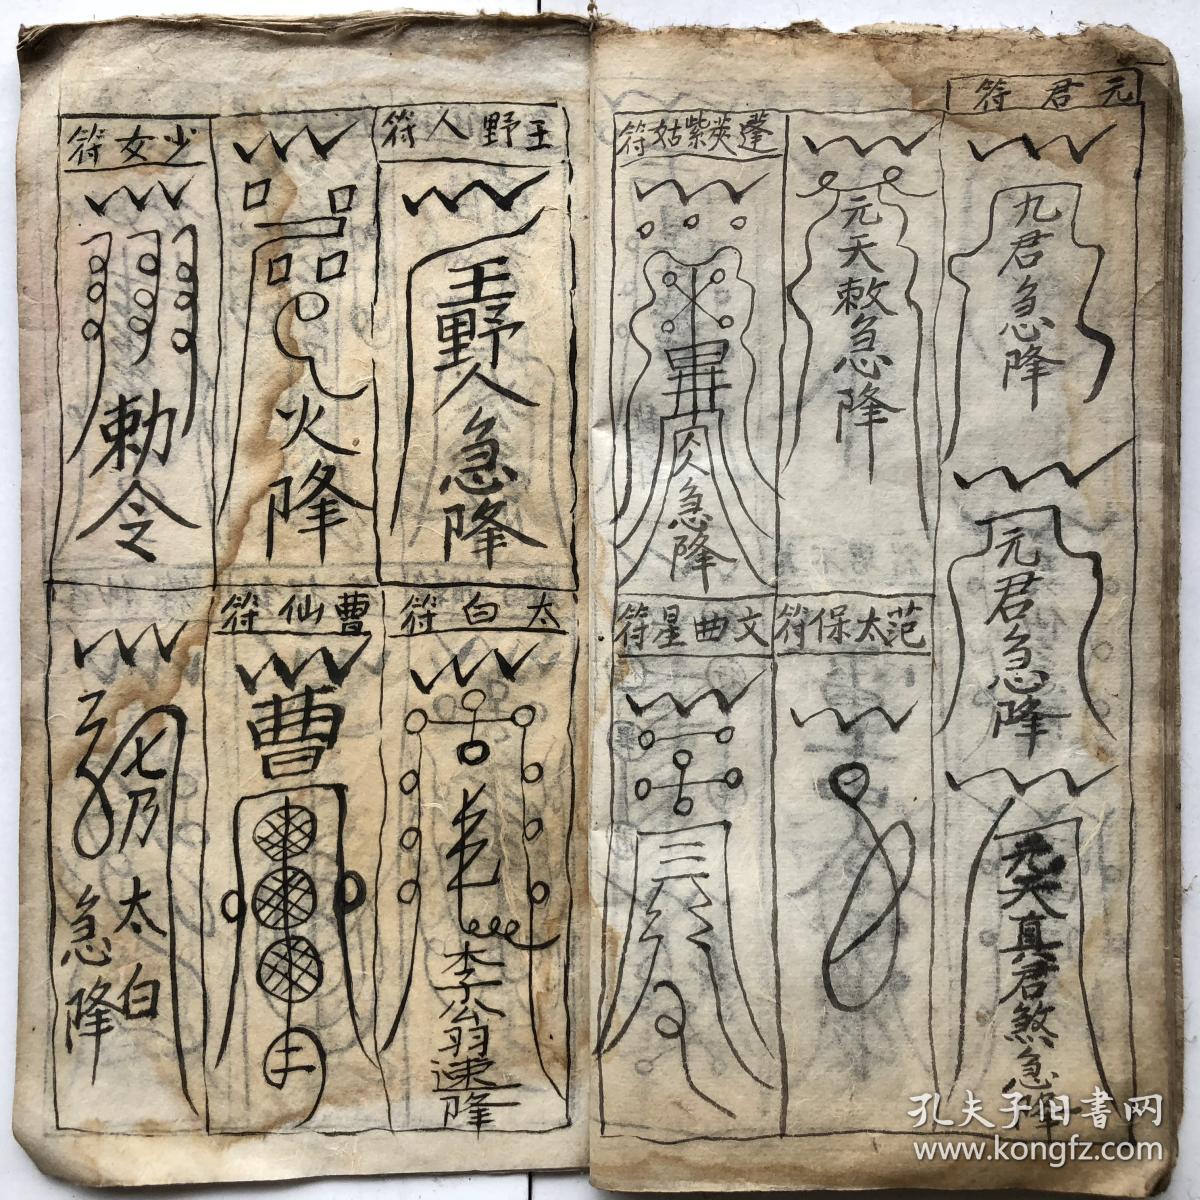 元君符
九君急降
元君急降
元天真君煞急降
元天敕急降
范太保符
蓬萊紫姑符
急降
文曲星符
三
王野人符
王野人急降
太白符
李公翁速降
火降
曹仙符
曹
少女符
勅令
七乃太白
急降
孔夫子旧书网
www.kongfz.com